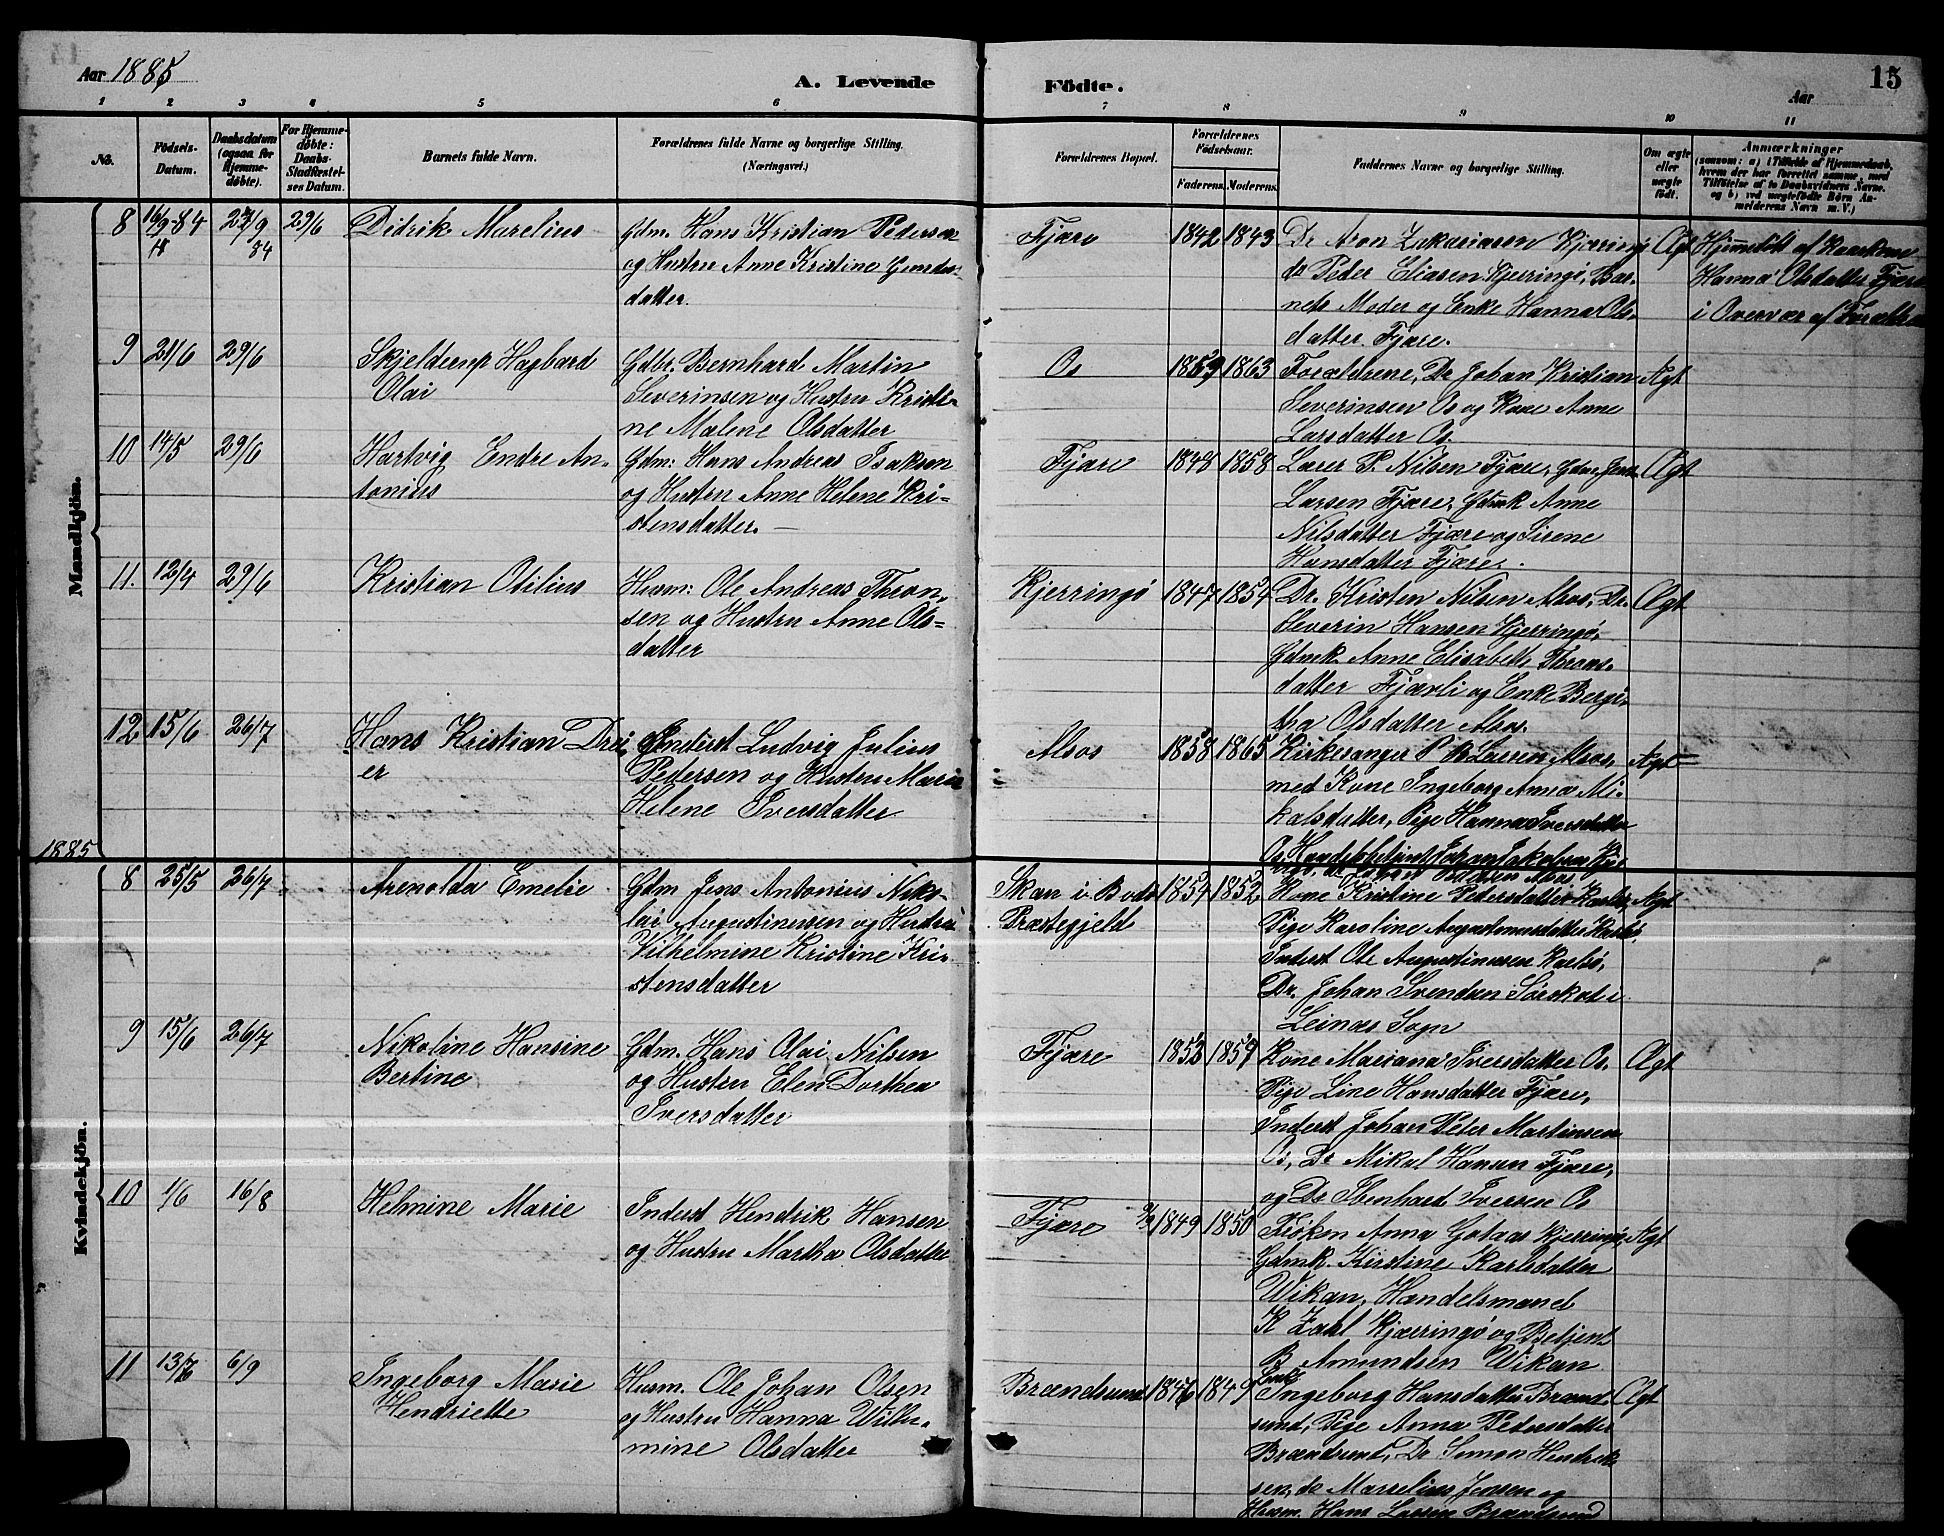 Aar 1885
A. Levende
Födte.
Aar
15
1 2 3 4 5 6 7 8 9 10 11
No.
Födsels-
Datum.
Daabsdatum
(ogsaa for
Hjemme-
döbte).
For Hjemme-
döbte:
Daabs-
Stadfæstel-
ses Datum.
Barnets fulde Navn.
Forældrenes fulde Navne og borgerlige Stilling.
(Næringsvei.)
Forældrenes Bopæl.
Forældrenes
Födselsaar.
Faderens. Moderens.
Faddernes Navne og borgerlige Stilling.
Om ægte
eller
uægte
födt.
Anmærkninger
(saasom: a) i Tilfælde af Hjemmedaab,
hvem der har forrettet samme, med
Tilföielse af to Daabsvidners Navne.
og b) ved uægtefödte Börn An-
melderens Navn m. V.)
Mandkjön.
8 16/9-84 29/6
84
Didrik Marelius
Gdm. Hans Kristian Pedersen
og Hustru Anne Kristine
datter.
Fjære
1842 1843
Dr Aron Zakariasen Kjerringö
do Peder Eliasen Kjerringö, Bar-
nets Moder og Enke Hanna Ols-
datter Fjære.
Ægt
Hjemmedöbt af
Hanna Olsdatter Fjære
i Overvær af
9 21/6 29/6
Skjelderup Hagbard
Olai
Gdbr. Bernhard Martin
Severinsen og Hustru Kristi-
ne Malene Olsdatter
Os
1863
Forældrene, Dr Johan Kristian
Severinsen Os og Kone Anne
Larsdatter Os.
Ægt
10 14/5 29/6
Hartvig Endre An-
tonius
Gdm: Hans Andreas Isaksen
og Hustru Anne Helene Kri-
stensdatter.-
Fjære
1848 1858
Lærer P. Nilsen Fjære, Gdm.
Larsen Fjære, Gdmk Anne
Nilsdatter Fjære og Sirene
Hansdatter Fjære.
Ægt
11. 12/4 29/6
Kristian Otilius
Husm: Ole Andreas Thron-
sen og Hustru Anne Ols-
datter
Kjerringö
1847 1854
Dr. Kristen Nilsen Alsos, Dr.
Severin Hansen Kjerringö,
Gdmk. Anne Elisabeth Throns-
datter Fjærli og Enke Bergi-
tha Olsdatter Alsos.
Ægt
12 15/6 26/7
Hans Kristian Drei-
er
Inderst Ludvig Julius
Pedersen og Hustru Maria
Helene Iversdatter
Alsos
1858 1865
Kirkesanger P. Larsen Alsos,
med Kone Ingeborg Anna Mi-
kalsdatter, Pige Hanna Iversdatter
Os, Handelsbetjent Johan Jakobsen
Ægt
1885
Kvindekjön.
8 25/5 26/7
Arnolda Emelie
Gdm Jens Antonius Niko-
lai Augustinussen og Hustru
Vilhelmine Kristine Kri-
stensdatter
Skau i Bodö
Præstegjeld
1854 1852
Kone Kristine Pedersdatter Karlsö,
Pige Karoline Augustinusdatter Karlsö,
Inderst Ole Augustinusen Karlsö,
Dr. Johan Svendsen Sörskot i
Leinæs Sogn
Ægt
9 15/6 26/7
Nikoline Hansine
Bertine
Gdm. Hans Olai Nilsen
og Hustru Elen Dorthea
Iversdatter
Fjære
1853 1859
Kone Mariana Iversdatter Os,
Pige Line Hansdatter Fjære,
Inderst Johan Peter Martinsen
Os, Dr Mikal Hansen Fjære,
og Dr Ibenhard Iversen Os
Ægt
10 1/6 16/8
Helmine Marie
Inderst Hendrik Hansen
og Hustru Martha Olsdatter
Fjære
1849 1850
Fröken Anna Gotaas Kjerringö,
Gdmk. Kirstine Karlsdatter
Wikan, Handelsmand
K Zahl Kjærringö og Betjent
B. Amundsen Wikan
Ægt
11 13/7 6/9
Ingeborg Marie
Hendriette
Husm. Ole Johan Olsen
og Hustru Hanna Wilhel-
mine Olsdatter
Brændsund
1846 1849
Enke
Ingeborg Hansdatter Brænd-
sund, Pige Anna Pedersdatter
Brændsund, Dr Simon Hendrik-
sen, do Marselius Jensen og
Husm. Hans Larsen Brændsund
Ægt